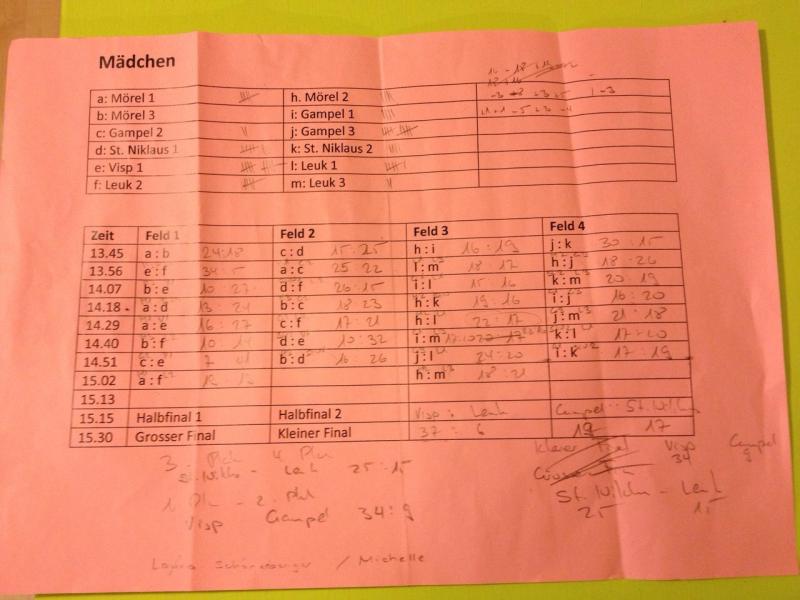 Mädchen
a: Mörel 1 h. Mörel 2
b: Mörel 3 i: Gampel 1
c: Gampel 2 j: Gampel 3
d: St. Niklaus 1 k: St. Niklaus 2
e: Visp 1 l: Leuk 1
f: Leuk 2 m: Leuk 3
Zeit Feld 1 Feld 2 Feld 3 Feld 4
13.45 a : b 24:18 c : d 15:25 h : i 16:19 j : k 30:15
13.56 e : f 34:5 a : c 25 22 l : m 18:17 h : j 18:26
14.07 b : e 10:27 d : f 26:15 i : l 15:16 k : m 20:19
14.18 a : d 13:24 b : c 18 23 h : k 19:16 i : j 16:20
14.29 a : e 16:27 c : f 17:21 h : l 22:17 j : m 21:18
14.40 b : f 10:14 d : e 10:32 i : m k : l 17:20
14.51 c : e b : d 16:26 j : l 24:20 i : k 17:19
15.02 a : f 12:12 h : m 18:21
15.13
15.15 Halbfinal 1 Halbfinal 2 Visp : Leuk Gampel : St. Niklaus
15.30 Grosser Final Kleiner Final 37 : 6 19 17
Visp Gampel
34 9
St. Niklaus - Leuk 25:15
Visp Gampel 34:9
St. Niklaus - Leuk
25 15
/ Michelle